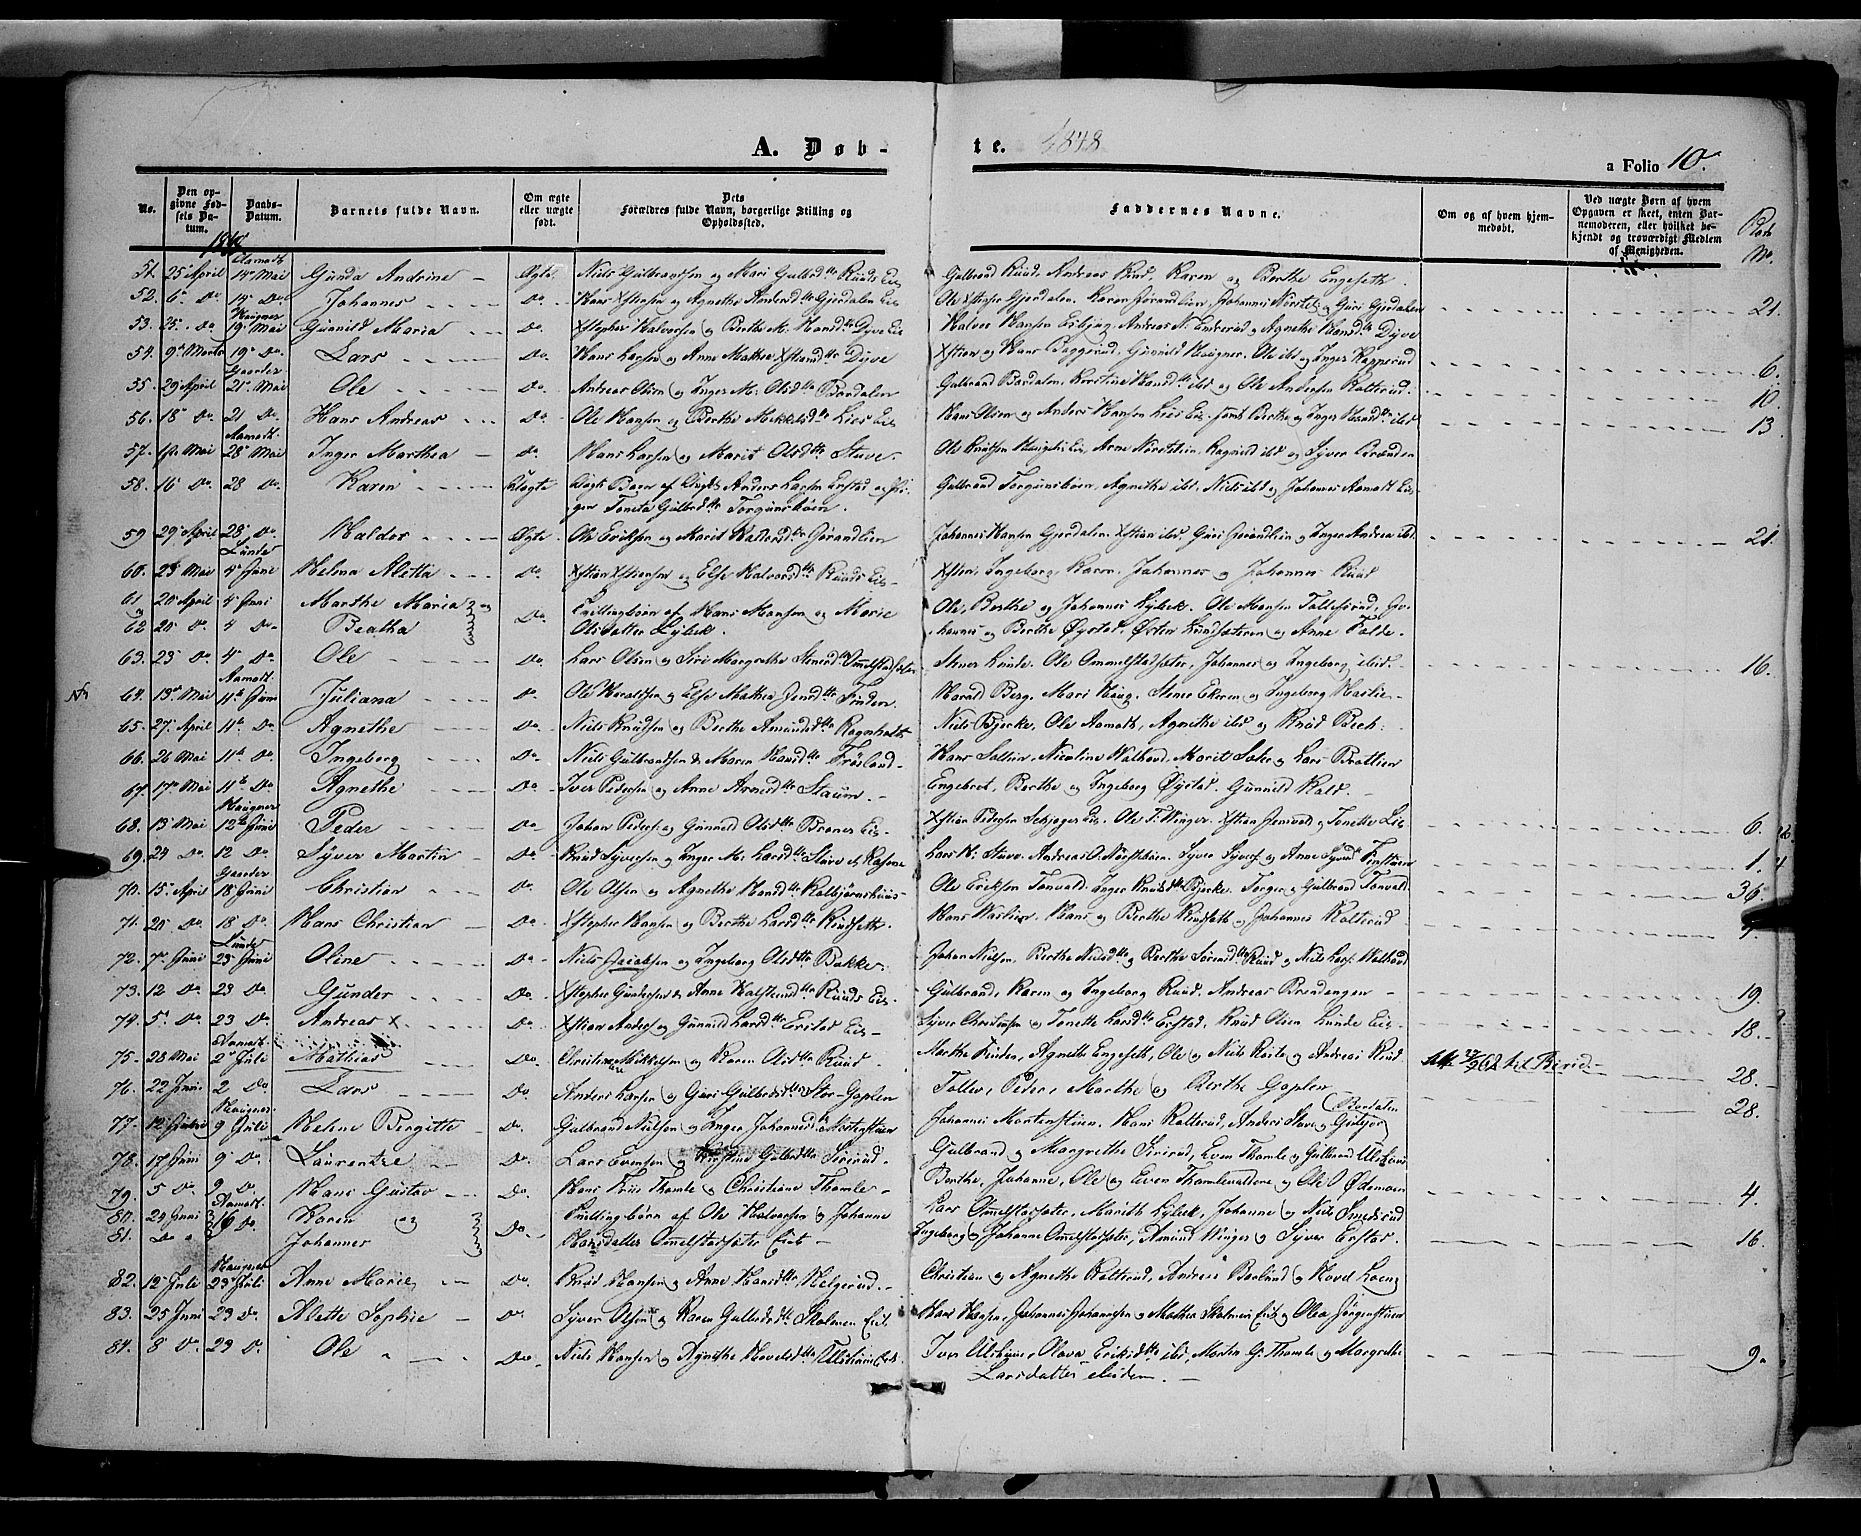 A. Døb-
te. 1848
a Folio 10.
No.
Den opgivne Fødsels Datum.
Daabs-Datum.
Barnets fulde Navn.
Om ægte eller uægte født.
Dets Forældres fulde Navn, borgerlige Stilling og Opholdssted.
Faddernes Navne.
Om og af hvem hjemmedøbt.
Ved uægte Børn af hvem Opgaven er skeet, enten Barnemoderen, eller hvilket bekjendt og troværdigt Medlem af Menigheden.
No.
1848
Aamodt
51. 25 April 14 Mai Gunda Andrine Ægte Niels Gulbrandsen og Mari Gulbrdtr Ruuds Eie Gulbrand Ruud. Andreas Ruud. Karen og Berthe Engeseth.
52. 6 Do 14 Do Johannes Do Hans Xstiansen og Agnethe Andersdtr Gjerdalen Eie Ole Xstiansen Gjerdalen. Karen Jørandlien, Johannes Nørstel og Guri Gjerdalen 21.
Haugner
53. 25 Do 19 Mai Gunild Maria Do Xstopher Halvorsen og Berthe M. Hansdtr Dyve Eie Halvor Hansen Eriksrud Andreas N. Enderud og Agnethe Hansdtr Dyve
54. 9 Marts 19 Do Lars Do Hans Larsen og Anne Mathea Xstiansdtr Dyve Xstian og Hans Baggerud, Gunild Haugner. Ole ibd og Inger Kapperud 6.
Gaarder
55. 29 April 21 Mai Ole Do Andreas Olsen og Inger M. Olsdtr Bardalen Gulbrand Bardalen. Kerstine Hansdtr ibd og Ole Andersen Kolterud. 10.
56. 18 Do 21 Do Hans Andreas Do Ole Hansen og Berthe Mikkelsdtr Lies Eie Hans Olsen og Anders Hansen Lies Eie samt Berthe og Inger Hansdtr ibd 13
Aamodt
57. Mai 28 Mai Inger Marthea Do Hans Larsen og Marit Olsdtr Stave. Ole Knutsen Haugslie Eie, Arne Nørstelien. Ragnild ibd og Syver Brænden
58. 16 Do 28 Do Karen Uægte Uægte Barn af Ungk. Anders Larsen Erstad og Pigen Toneta Gulbrdtr Torgunsbøen. Gulbrand Torgunsbøen. Agnethe ibd. Niels ibd og Johannes Aamodt Eie
59 29 April 28 Do Haldor Ægte Ole Eriksen og Marit Jørandlien Johannes Hansen Gjerdalen. Xstian ibd. Guri Jørandlien og Inger Andrea ibd. 21.
Lunde
60. 23 Mai 4 Juni Helena Aletta Do Xstian Xstiansen og Else Halvorsdtr Ruuds Eie Xstian, Ingeborg, Karen, Johannes og Johannes Ruud
61 20 April 4 Juni Marthe Maria og
62 20 Do 4 Do Beatha Do Tvillingbørn af Hans Hansen og Marie Olsdatter Lybek. Ole, Berthe og Johannes Lybek. Ole Hansen Tollefsrud, Johannes og Berthe Øystad, Østen Lundsæteren og Anne Folde.
63. 23 Do 4 Do Ole Do Lars Olsen og Siri Margrethe Stenersdtr Ommelstadsæter Stener Lunde. Ole Ommelstadsæter, Johannes og Ingeborg ibid. 16.
Aamodt
64. 13 Mai 11 Juni Juliana Do Ole Haraldsen og Else Mathea Jensdtr Finden. Harald Berg. Mari Haug. Stener Ekeren og Ingeborg Haslie
65. 27 April 11 Do Agnethe Do Niels Knudsen og Berthe Amundsdtr Ragnholt Niels Bjerke, Ole Aamodt, Agnethe ibd og Knud Bech.
66. 26 Mai 11 Do Ingeborg Do Niels Gulbrandsen & Maren Hansdtr Frøsland Hans Sollien, Nicoline Walhovd, Marit Sæter og Lars Brattlien
67. 17 Mai 11 Do Agnethe Do Iver Pedersen og Anne Arnesdtr Staum. Engebret, Berthe og Ingeborg Øystad, Gunnild Kald.
Haugner
68. 13 Mai 12 Juni Peder Do Johan Peders. og Gunnild Olsdtr Braners Eie Xstian Pedersen Schjøges Eie. Ole T. Winger. Xstian Jensvold og Tonette Lie 6.
69. 24 Do 12 Do Syver Martin Do Knud Syversen og Inger M. Larsdtr Stave & Kasene Lars N. Stave. Andreas O. Nørstelien. Syver Syvers. og Anne Syvdtr Finstuen 1.
Gaarder
70. 15 April 18 Juni Christian Do Ole Olsen og Agnethe Hansdtr Kolbjørnshuus Ole Eriksen Tonvold. Inger Knudsdtr Bjerke. Torger og Gulbrand Tonvold 36
71. 20 Do 18 Do Hans Christian Do Xstopher Hansen og Berthe Larsdtr Rudseth. Hans Haslien. Hans og Berthe Rudseth og Johannes Kolterud 9.
Lunde
72. 7 Juni 23 Juni Oline Do Niels Jacobsen og Ingeborg Olsdtr Bakke. Johan Nielsen. Berthe Nilsdtr og Berthe Sørensdtr Ruud og Niels Lars. Walhovd
73. 12 Do 23 Do Gunder Do Xstopher Gundersen & Anne Halsteensdtr Ruuds Eie. Gulbrand, Karen og Ingeborg Ruud. Andreas Brendengen 19.
74. 5 Do 23 Do Andreas X. Do Xstian Anders. og Gunnild Larsdtr Erstad Eie Syver Christensen og Tonette Larsdtr Erstad. Knud Olsen Lunde Eie 18.
Aamodt
75. 28 Mai 2 Juli Mathias Do Christian Mikkelsen og Karen Olsdtr Ruud Marthe Finden, Agnethe Engeseth, Ole og Niels Roste og Andreas Ruud. Att 27/9 62 til Birid. 28.
76. 22 Juni 2 Do Lars Do Anders Larsen og Guri Gulbrdsdtr Stor-Goplen Tollev, Peder, Marthe og Berthe Goplen 28.
Haugner
77. 12 Juni 9 Juli Helene Bergitte Do. Gulbrand Nielsen og Inger Johannesdtr Mortenstuen Johannes Mortenstuen. Hans Kolterud, Anders Stave og Guldjor (Bardalen
78. 17 Juni 9 Do Laurentze Do. Lars Evensen og Kirstine Gulbrdtr Sørerud. Gulbrand og Margrethe Sørerud, Even Thomle og Gulbrand Ulshuus
79. 5 Do 9 Do Hans Gustav Do. Hans Friis Thomle og Christiane Thomle Berthe, Johanne, Ole og Even Thomlevoldene og Ole O. Ødemoen 4.
Aamodt
80. 24 Juni 16 Do. Karen og
81. Do Johannes Do. Tvillingbørn af Ole Halvorsen og Johanne Hansdatter Ommelstadsæter Eiet Lars Ommelstadsæter, Marith Lybek, Johanne og Niels Smedsrud Ingeborg og Johanne Ommelstadsæter, Amund Winger og Syver Erstad. 16.
Haugner
82. 12 Juli 23 Juli Anne Marie Do. Knud Hansen og Anne Hansdtr Helgerud. Christian og Agnethe Kolterud, Andreas Berland og Hovel Loeng
83. 25 Juni 23 Do. Alette Sophie Do Syver Olsen og Karen Gulbrdsdtr Skolmen Eiet. Hans Hansen, Johannes Johannesen og Mathea Skolmen Eiet og Olea Jørgenstuen
84. 8 Do. 23 D. Ole Do. Niels Hansen og Agnethe Hovelsdtr Ulshuus Eiet. Iver Ulshuus, Olava Eriksdtr ibd, Morten G. Thomle og Margrethe Larsdatter ibidem. 9.